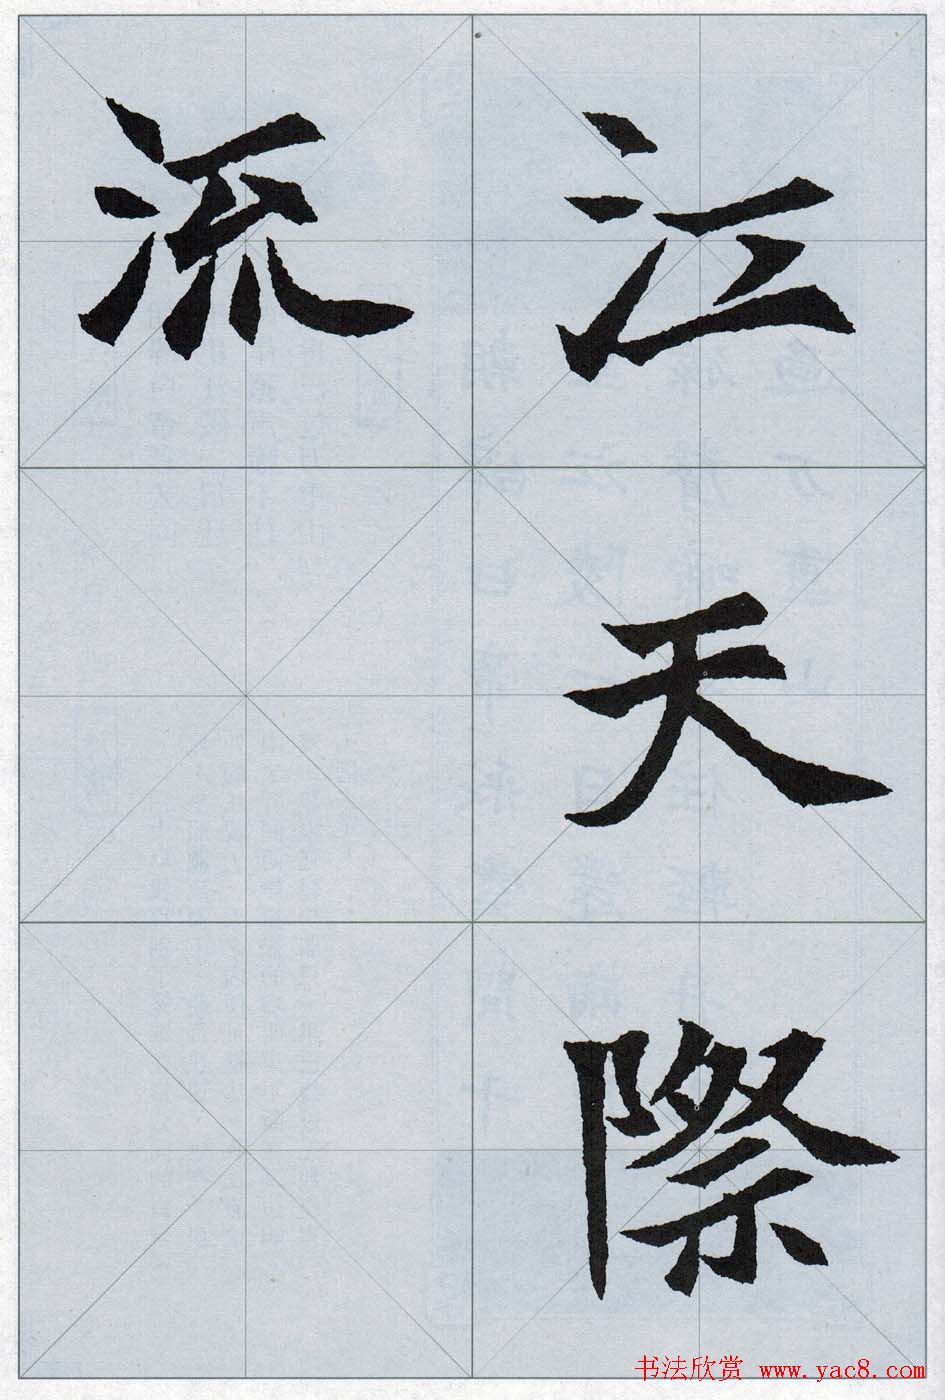 江天際
流
书法欣赏 www.yac8.com